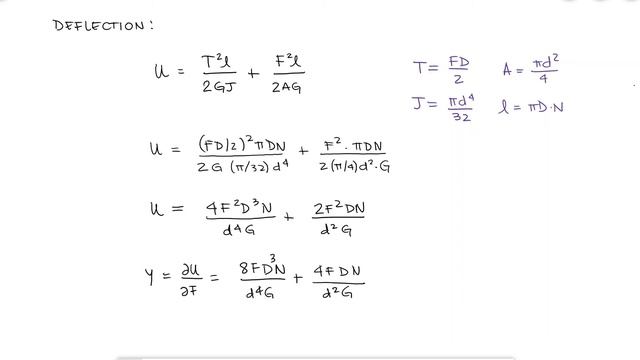 DEFLECTION:
U = T²l/2GJ + F²l/2AG
T = FD/2 A = πd²/4
J = πd⁴/32 l = πD·N
U = (FD/2)²πDN/2G(π/32)d⁴ + F²·πDN/2(π/4)d²·G
U = 4F²D³N/d⁴G + 2F²DN/d²G
Y = ∂U/∂F = 8FD³N/d⁴G + 4FDN/d²G